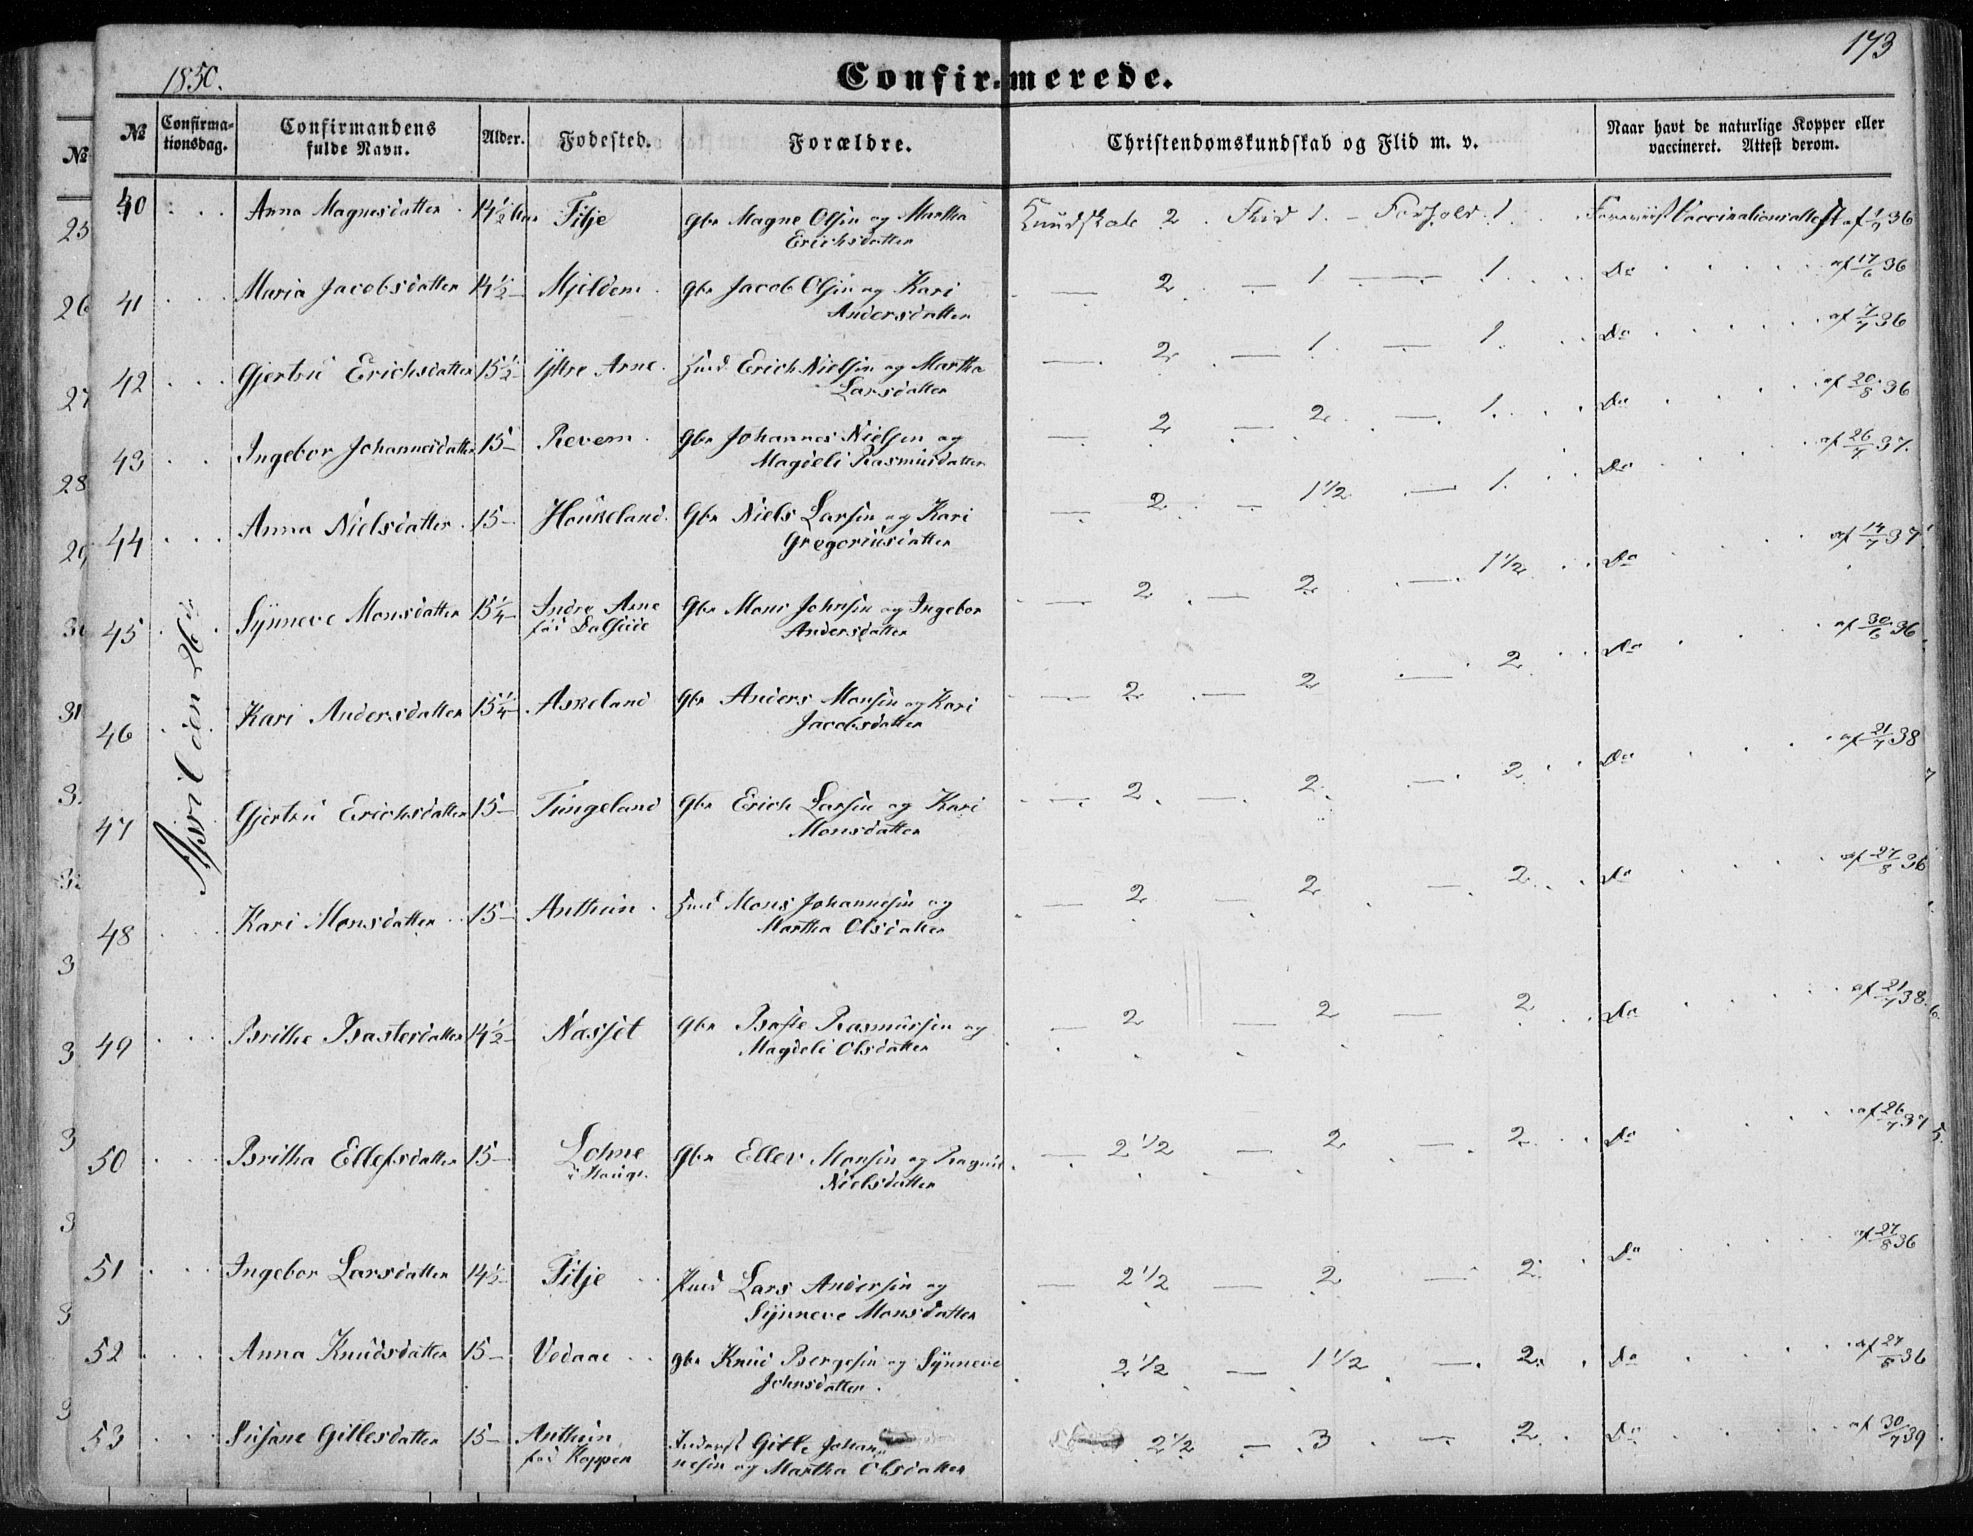 1850. Confirmerede. 173
№ Confirmationsdag. Confirmandens fulde Navn. Alder. Fodested. Forældre. Christendomskundskab og Flid m. v. Naar havt de naturlige Kopper eller vaccineret. Attest derom.
April den 26de
40 Anna Magnesdatter 14½ Aar Filje Gbr Magne Olsen og Martha Kundskab 2 . Flid 1. – Forhold 1 Foreviist Vaccinationsattest af 1/7 36
Erichsdatter
41 Maria Jacobsdatter 14½ – Mjeldem Gbr Jacob Olsen og Kari — 2 — 1 — 1. Do af 17/6 36
Andersdatter
42 Gjertru Erichsdatter 15½ – Yttre Arne Huusmd Erich Nielsen og Martha — 2 — 1. — 1. Do af 7/7 36
Larsdatter
43 Ingebor Johannesdatter 15 – Revem Gbr Johannes Nielsen og — 2 — 2 — 1. Do af 20/8 36
Magdeli Rasmusdatter
44 Anna Nielsdatter 15 – Houkeland Gbr Niels Larsen og Kari — 2 — 1½ — 1. Do af 26/7 37.
Gregoriusdatter
45 Synneve Monsdatter 15¼ – Indre Arne Gbr Mons Johnsen og Ingebor — 2 — 2 — 1½ Do af 14/7 37
Andersdatter
46 Kari Andersdatter 15¼ – Askeland Gbr Anders Monsen og Kari — 2 — 2 — 2 Do af 30/6 36
Jacobsdatter
47 Gjertru Erichsdatter 15 – Tungeland Gbr Erich Larsen og Kari — 2 — 2 — 2 Do af 21/7 38
Monsdatter
48 Kari Monsdatter 15 – Anthun Huusmd Mons Johannesen og — 2 2 — 2 Do af 27/8 36
Martha Olsdatter
49 Brithe Bastesdatter 14½ – Næsset Gbr Baste Rasmussen og — 2 — 2 — 2 Do af 21/7 38
Magdeli Olsdatter
50 Britha Ellefsdatter 15 – Lohne Gbr Ellev Monsen og Ragnil — 2½ — 2 — 2 Do af 26/7 37
i Houge. Nielsdatter
51 Ingebor Larsdatter 14½ – Filje Huusmd Lars Andersen og — 2½ — 2 — 2 Do af 27/8 36
Synneve Monsdatter
52 Anna Knudsdatter 15 – Vedaae Gbr Knud Bergesen og Synneve 2½ — 1½ — 2 Do af 27/8 36
Johnsdatter
53 Susane Gillesdatter 15 – Anthun Inderst Gille Johan- 2½ — 3 — 2 Do af 30/7 39
nesen og Martha Olsdatter